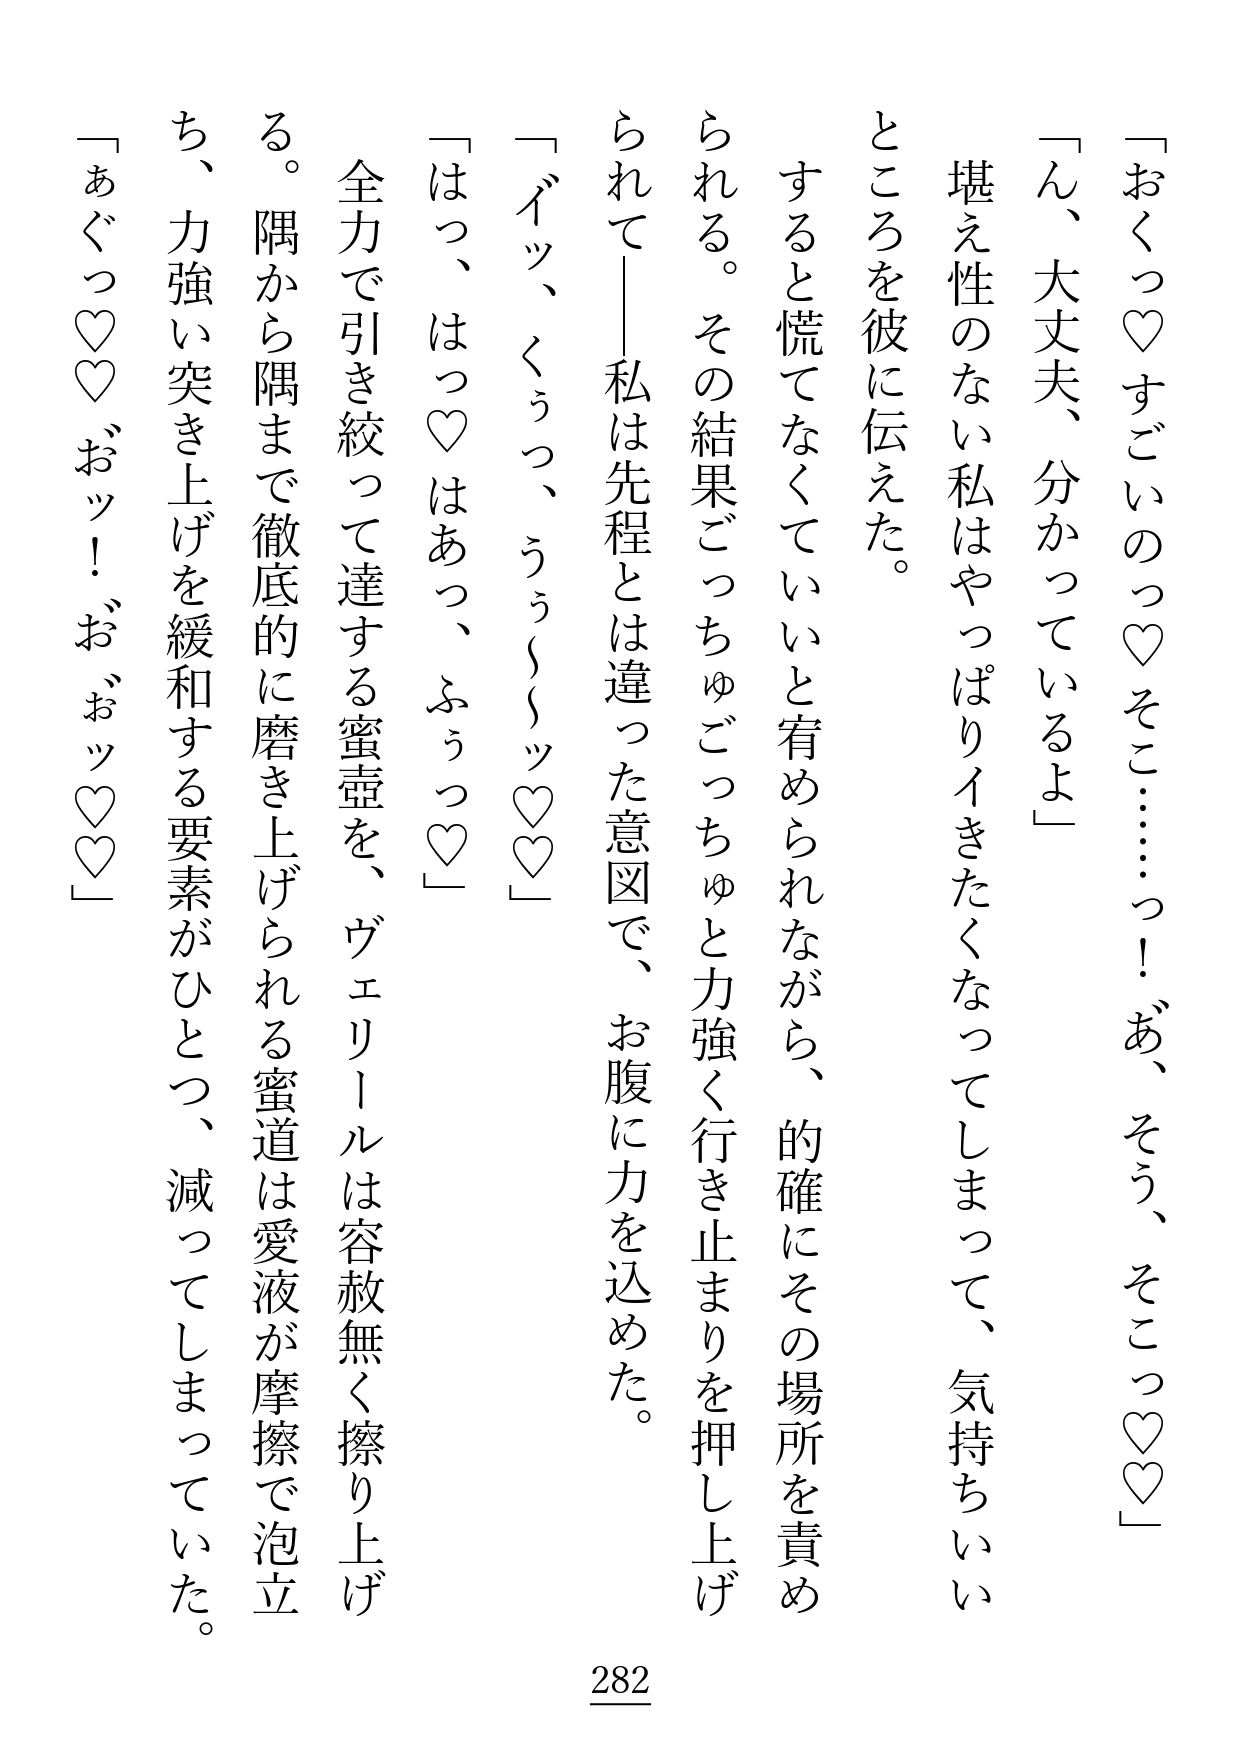 「おくっ♡すごいのっ♡そこ……っ！あ゙、そう、そこっ♡♡」
「ん、大丈夫、分かっているよ」
　堪え性のない私はやっぱりイきたくなってしまって、気持ちいい
ところを彼に伝えた。
　すると慌てなくていいと宥められながら、的確にその場所を責め
られる。その結果ごっちゅごっちゅと力強く行き止まりを押し上げ
られて――私は先程とは違った意図で、お腹に力を込めた。
「イ゙ッ、くぅっ、うぅ～～ッ♡♡」
「はっ、はっ♡はあっ、ふぅっ♡」
　全力で引き絞って達する蜜壺を、ヴェリールは容赦無く擦り上げ
る。隅から隅まで徹底的に磨き上げられる蜜道は愛液が摩擦で泡立
ち、力強い突き上げを緩和する要素がひとつ、減ってしまっていた。
「ぁぐっ♡♡お゙ッ！お゙ぉ゙ッ♡♡」
282